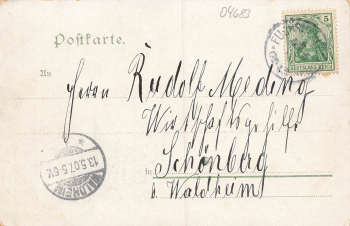 04683
Postkarte.
5
DEUTSCHES REICH
An
Herrn Rudolf Meding
Wirtschaftsgehilfe
in Schönberg
b. Waldheim
13.5.07. 5-6V.